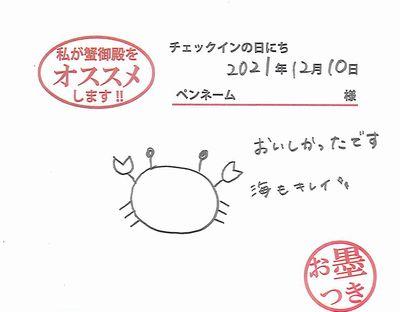 私が蟹御殿を
オススメ
します!!
チェックインの日にち
2021年12月10日
ペンネーム 様
おいしかったです
海もキレイ
お墨
つき